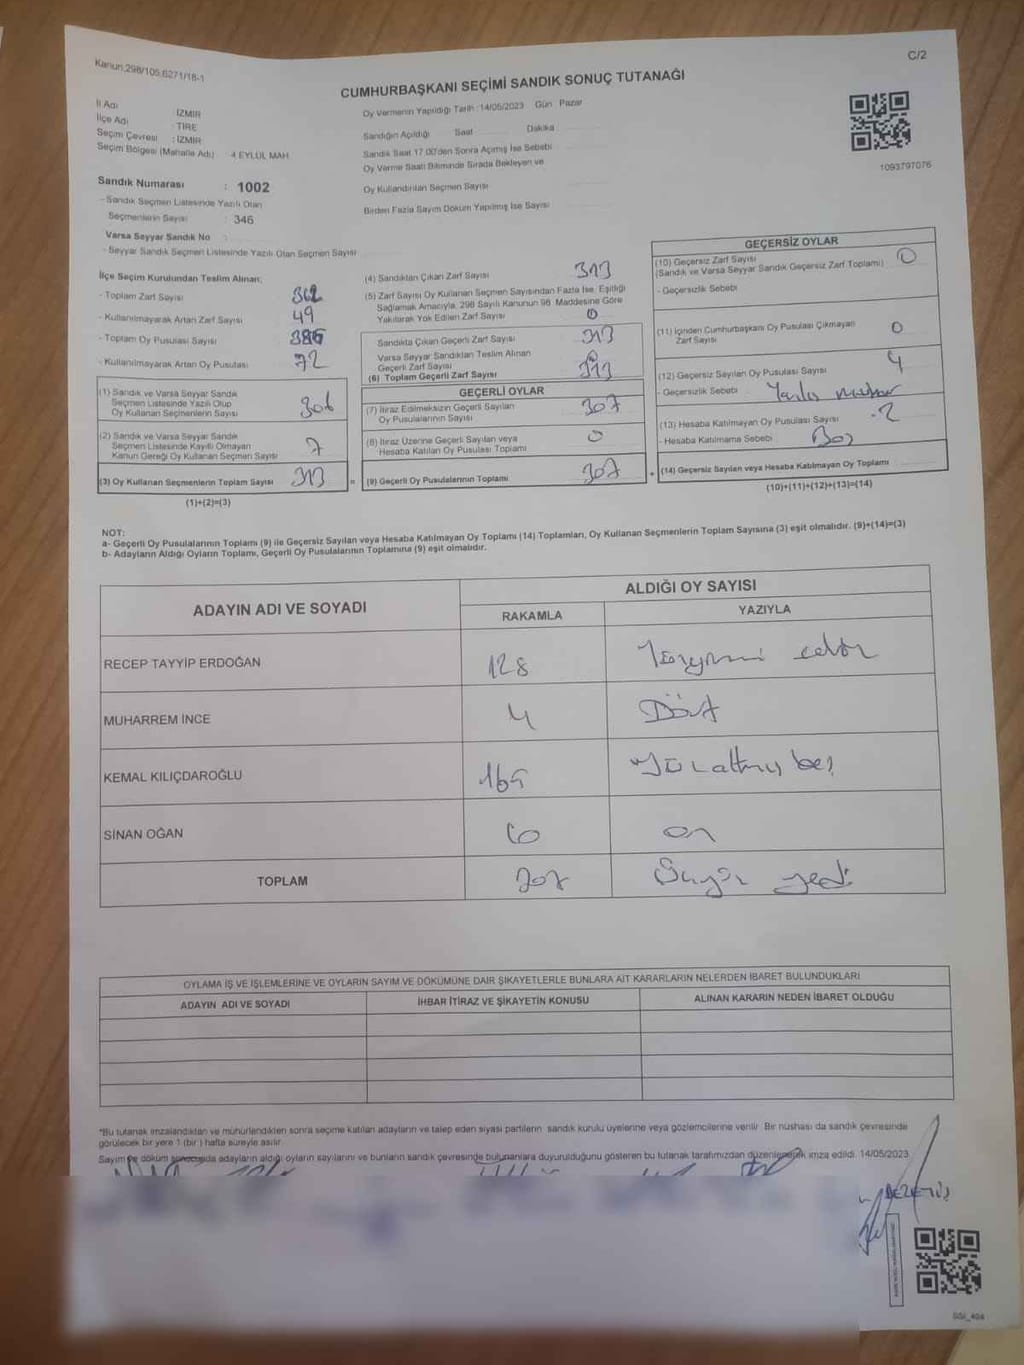 Kanun;298/105,6271/18-1
C/2
CUMHURBAŞKANI SEÇİMİ SANDIK SONUÇ TUTANAĞI
İl Adı : İZMİR
İlçe Adı : TİRE
Seçim Çevresi : İZMİR
Seçim Bölgesi (Mahalle Adı) : 4 EYLÜL MAH
Sandık Numarası : 1002
- Sandık Seçmen Listesinde Yazılı Olan
Seçmenlerin Sayısı : 346
Varsa Seyyar Sandık No :
- Seyyar Sandık Seçmen Listesinde Yazılı Olan Seçmen Sayısı
Oy Vermenin Yapıldığı Tarih :14/05/2023 Gün : Pazar
Sandığın Açıldığı Saat Dakika
Sandık Saat 17.00'den Sonra Açılmış İse Sebebi
Oy Verme Saati Bitiminde Sırada Bekleyen ve
Oy Kullandırılan Seçmen Sayısı
Birden Fazla Sayım Döküm Yapılmış İse Sayısı
1093797076
İlçe Seçim Kurulundan Teslim Alınan;
- Toplam Zarf Sayısı 362
- Kullanılmayarak Artan Zarf Sayısı 49
- Toplam Oy Pusulası Sayısı 385
- Kullanılmayarak Artan Oy Pusulası 72
(1) Sandık ve Varsa Seyyar Sandık
Seçmen Listesinde Yazılı Olup
Oy Kullanan Seçmenlerin Sayısı 306
(2) Sandık ve Varsa Seyyar Sandık
Seçmen Listesinde Kayıtlı Olmayan
Kanun Gereği Oy Kullanan Seçmen Sayısı 7
(3) Oy Kullanan Seçmenlerin Toplam Sayısı 313 =
(1)+(2)=(3)
(4) Sandıktan Çıkan Zarf Sayısı 313
(5) Zarf Sayısı Oy Kullanan Seçmen Sayısından Fazla İse, Eşitliği
Sağlamak Amacıyla, 298 Sayılı Kanunun 98. Maddesine Göre
Yakılarak Yok Edilen Zarf Sayısı 0
Sandıkta Çıkan Geçerli Zarf Sayısı 313
Varsa Seyyar Sandıktan Teslim Alınan
Geçerli Zarf Sayısı 0
(6) Toplam Geçerli Zarf Sayısı 313
GEÇERLİ OYLAR
(7) İtiraz Edilmeksizin Geçerli Sayılan
Oy Pusulalarının Sayısı 307
(8) İtiraz Üzerine Geçerli Sayılan veya
Hesaba Katılan Oy Pusulası Toplamı 0
(9) Geçerli Oy Pusulalarının Toplamı 307 +
GEÇERSİZ OYLAR
(10) Geçersiz Zarf Sayısı
(Sandık ve Varsa Seyyar Sandık Geçersiz Zarf Toplamı) 0
- Geçersizlik Sebebi
(11) İçinden Cumhurbaşkanı Oy Pusulası Çıkmayan
Zarf Sayısı 0
(12) Geçersiz Sayılan Oy Pusulası Sayısı 4
- Geçersizlik Sebebi Yanlış mühür
(13) Hesaba Katılmayan Oy Pusulası Sayısı 2
- Hesaba Katılmama Sebebi Boş
(14) Geçersiz Sayılan veya Hesaba Katılmayan Oy Toplamı
(10)+(11)+(12)+(13)=(14)
NOT:
a- Geçerli Oy Pusulalarının Toplamı (9) ile Geçersiz Sayılan veya Hesaba Katılmayan Oy Toplamı (14) Toplamları, Oy Kullanan Seçmenlerin Toplam Sayısına (3) eşit olmalıdır. (9)+(14)=(3)
b- Adayların Aldığı Oyların Toplamı, Geçerli Oy Pusulalarının Toplamına (9) eşit olmalıdır.
ADAYIN ADI VE SOYADI
ALDIĞI OY SAYISI
RAKAMLA YAZIYLA
RECEP TAYYİP ERDOĞAN 128
MUHARREM İNCE 4 Dört
KEMAL KILIÇDAROĞLU 165 Yüz altmış beş
SİNAN OĞAN 10 on
TOPLAM 307 yedi
OYLAMA İŞ VE İŞLEMLERİNE VE OYLARIN SAYIM VE DÖKÜMÜNE DAİR ŞİKAYETLERLE BUNLARA AİT KARARLARIN NELERDEN İBARET BULUNDUKLARI
ADAYIN ADI VE SOYADI İHBAR İTİRAZ VE ŞİKAYETİN KONUSU ALINAN KARARIN NEDEN İBARET OLDUĞU
*Bu tutanak imzalandıktan ve mühürlendikten sonra seçime katılan adayların ve talep eden siyasi partilerin sandık kurulu üyelerine veya gözlemcilerine verilir. Bir nüshası da sandık çevresinde
görülecek bir yere 1 (bir ) hafta süreyle asılır.
Sayım ve döküm sonucunda adayların aldığı oyların sayılarını ve bunların sandık çevresinde bulunanlara duyurulduğunu gösteren bu tutanak tarafımızdan düzenlenerek imza edildi. 14/05/2023